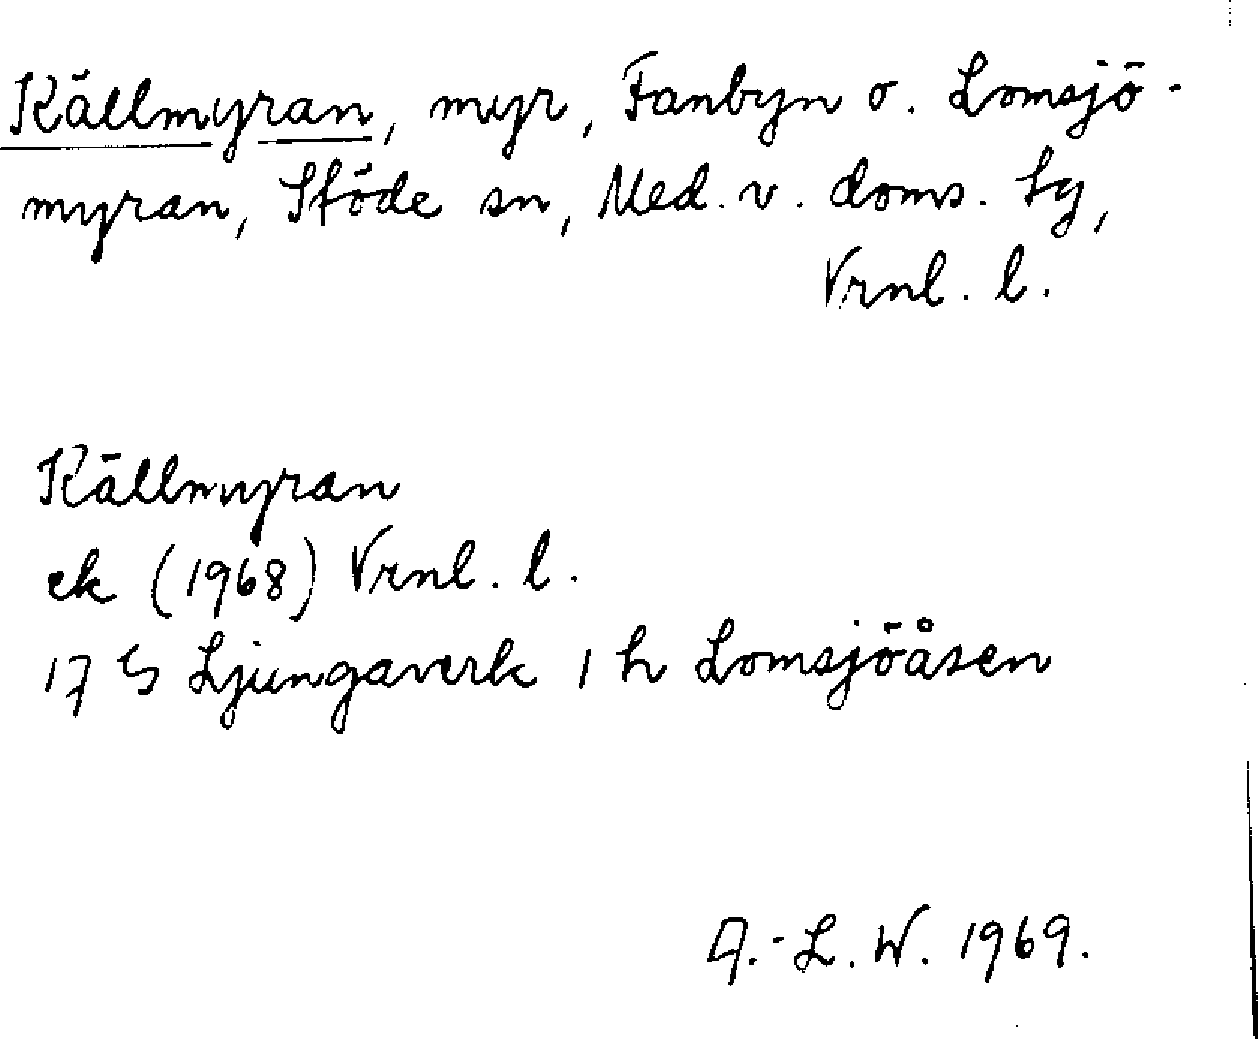 Källmyran, myr, Fanbyn o. Lomsjö-
myran, Stöde sn, Med. v. doms. tg,
Vrnl. l.
Källmyran
ek (1968) Vrnl. l.
17 G Ljungaverk 1 h Lomsjöåsen
A.-L. W. 1969.